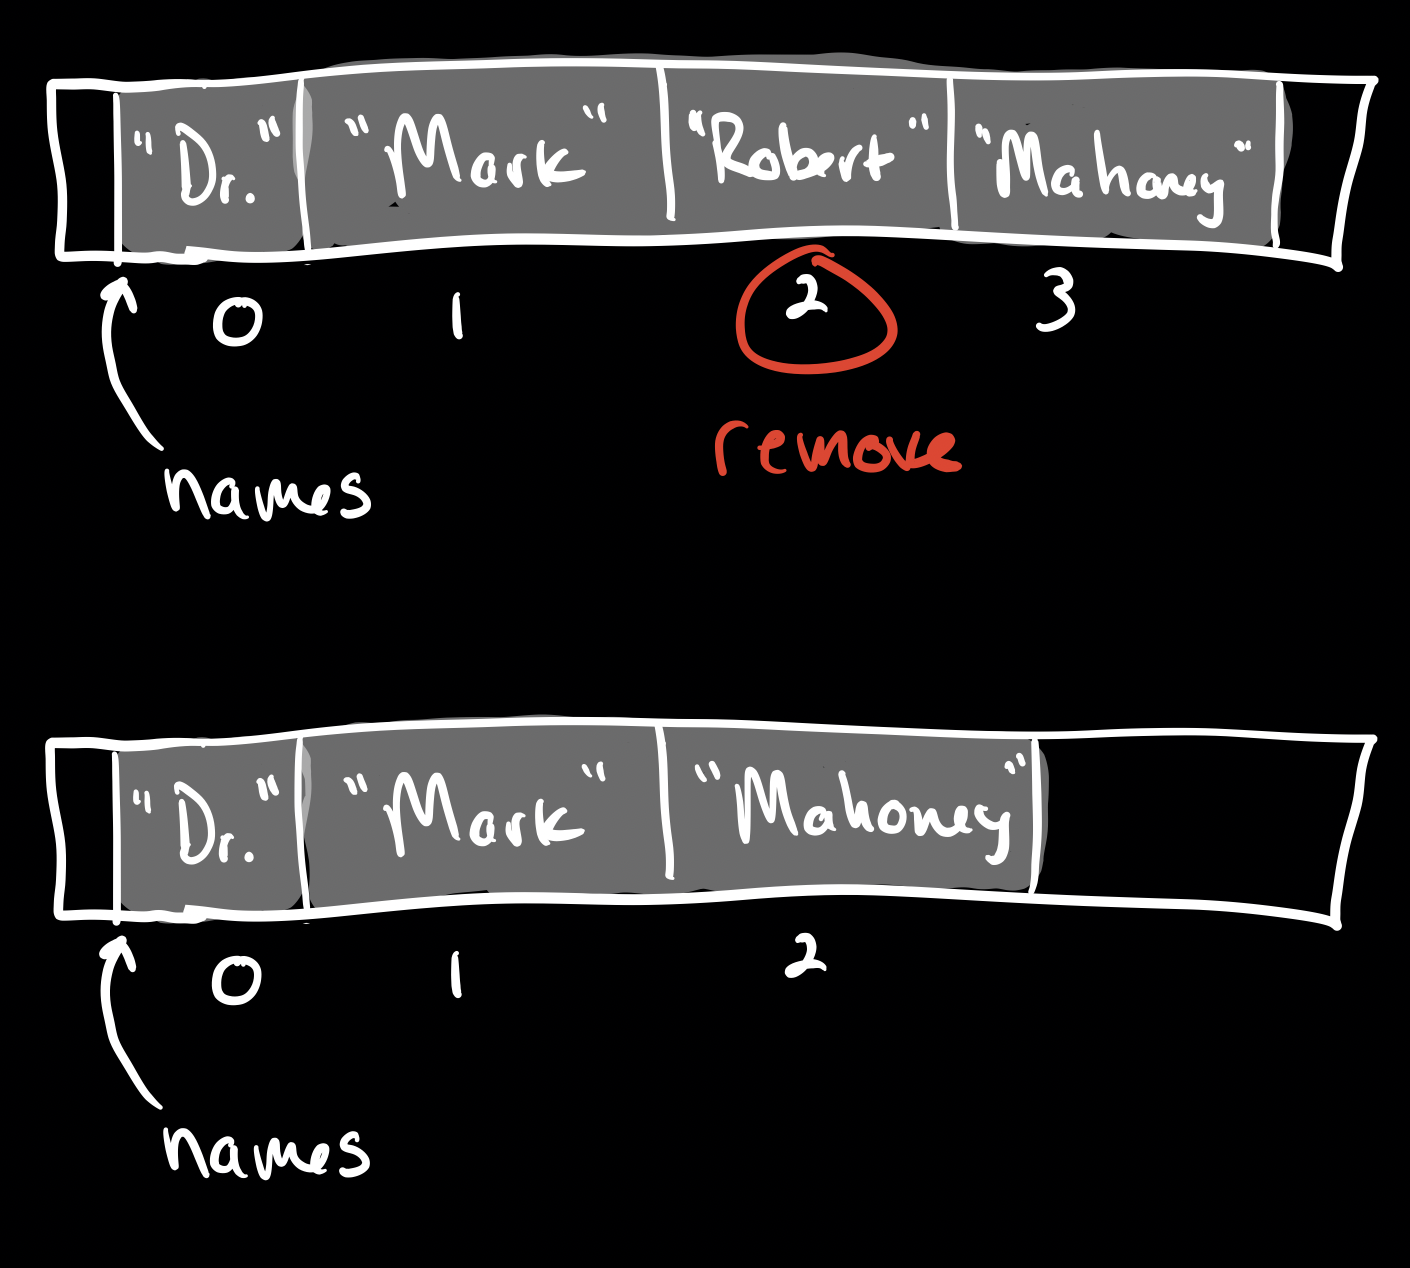 "Dr." "Mark" "Robert" "Mahoney"
0 1 2 3
remove
names
"Dr." "Mark" "Mahoney"
0 1 2
names